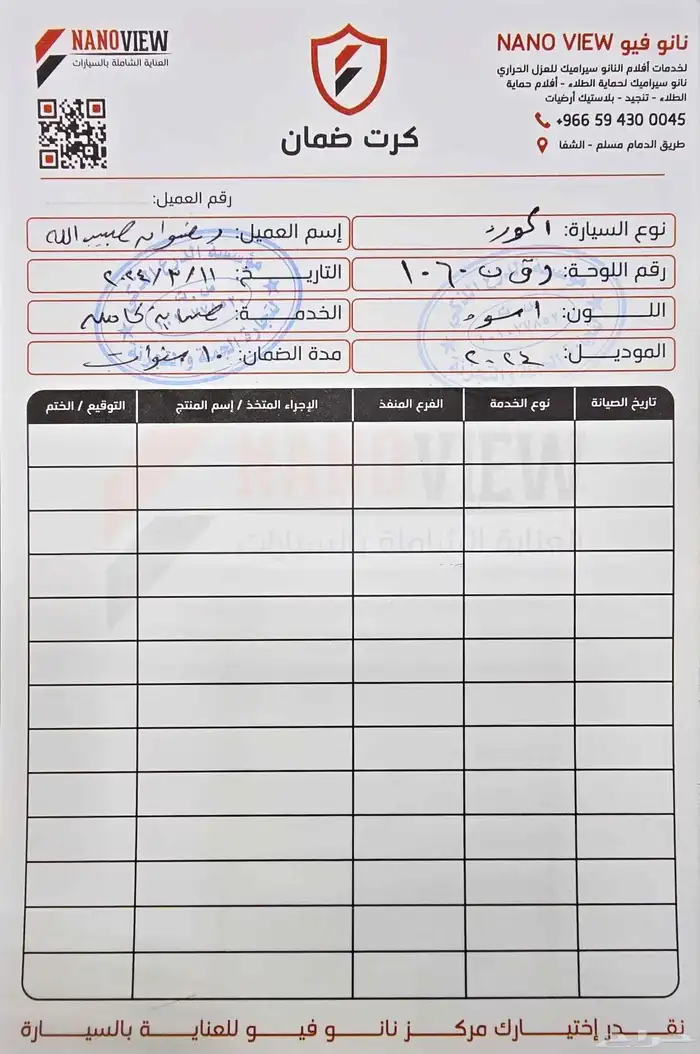 NANOVIEW
العناية الشاملة بالسيارات
نانو فيو NANO VIEW
لخدمات أفلام النانو سيراميك للعزل الحراري
نانو سيراميك لحماية الطلاء - أفلام حماية
الطلاء - تنجيد - بلاستيك أرضيات
+966 59 430 0045
طريق الدمام مسلم - الشفا
كرت ضمان
رقم العميل:
نوع السيارة: اكورد
إسم العميل: رضوان حبيب الله
رقم اللوحة: د ق ن ١٠٦٠
التاريخ: ٢٠٢٤/٣/١١
اللون: اسود
الخدمة: حماية كاملة
الموديل: ٢٠٢٤
مدة الضمان: ١٠ سنوات
تاريخ الصيانة نوع الخدمة الفرع المنفذ الإجراء المتخذ / إسم المنتج التوقيع / الختم
NANOVIEW
العناية الشاملة بالسيارات
نقدر إختيارك مركز نانو فيو للعناية بالسيارة